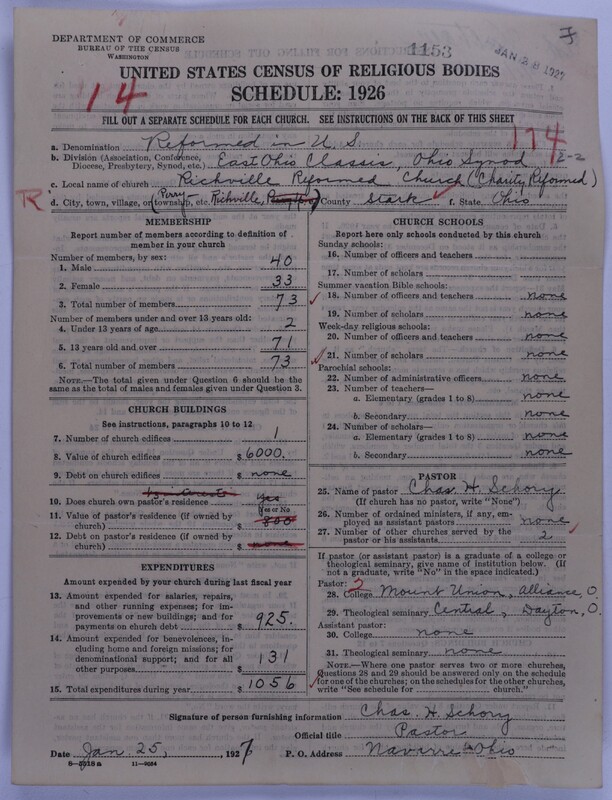 DEPARTMENT OF COMMERCE
BUREAU OF THE CENSUS
WASHINGTON
1153
JAN 28 1927
UNITED STATES CENSUS OF RELIGIOUS BODIES
SCHEDULE: 1926
14
FILL OUT A SEPARATE SCHEDULE FOR EACH CHURCH. SEE INSTRUCTIONS ON THE BACK OF THIS SHEET
174
a. Denomination Reformed in U. S.
b. Division (Association, Conference, Diocese, Presbytery, Synod, etc.) East Ohio Classis, Ohio Synod 2-2
c. Local name of church Richville Reformed Church (Charity Reformed)
R d. City, town, village, or (township, etc. Perry Richville, County Stark f. State, Ohio
MEMBERSHIP
Report number of members according to definition of
member in your church
Number of members, by sex:
1. Male 40
2. Female 33
3. Total number of members 73
Number of members under and over 13 years old:
4. Under 13 years of age 2
5. 13 years old and over 71
6. Total number of members 73
NOTE.—The total given under Question 6 should be
same as the total of males and females given under Question 3.
CHURCH BUILDINGS
See instructions, paragraphs 10 to 12
7. Number of church edifices 1
8. Value of church edifices $ 6000.
9. Debt on church edifices $ none
10. Does church own pastor's residence Yes
Yes or No
11. Value of pastor's residence (if owned by
church) $ 800
12. Debt on pastor's residence (if owned by
church) $ none
EXPENDITURES
Amount expended by your church during last fiscal year
13. Amount expended for salaries, repairs,
and other running expenses; for im-
provements or new buildings; and for
payments on church debt $ 925.
14. Amount expended for benevolences, in-
cluding home and foreign missions; for
denominational support; and for all
other purposes $ 131
15. Total expenditures during year $ 1056
CHURCH SCHOOLS
Report here only schools conducted by this church
Sunday schools:
16. Number of officers and teachers
17. Number of scholars
Summer vacation Bible schools:
18. Number of officers and teachers none
19. Number of scholars none
Week-day religious schools:
20. Number of officers and teachers none
21. Number of scholars none
Parochial schools:
22. Number of administrative officers none
23. Number of teachers—
a. Elementary (grades 1 to 8) none
b. Secondary none
24. Number of scholars—
a. Elementary (grades 1 to 8) none
b. Secondary none
PASTOR
25. Name of pastor Chas. H. Schory
(If church has no pastor, write "None")
26. Number of ordained ministers, if any, em-
ployed as assistant pastors none
27. Number of other churches served by the
pastor or his assistants 2
If pastor (or assistant pastor) is a graduate of a college or
theological seminary, give name of institution below. (If
not a graduate, write "No" in the space indicated.)
Pastor: 2
28. College Mount Union, Alliance, O.
29. Theological seminary Central, Dayton, O.
Assistant pastor:
30. College none
31. Theological seminary none
NOTE.—Where one pastor serves two or more churches,
Questions 28 and 29 should be answered only on the schedule
for one of the churches; on the schedules for the other churches,
write "See schedule for church."
Signature of person furnishing information Chas. H. Schory
Official title Pastor
Date Jan 25, 1927 P. O. Address Navarre Ohio
8-5018 a 11-9084